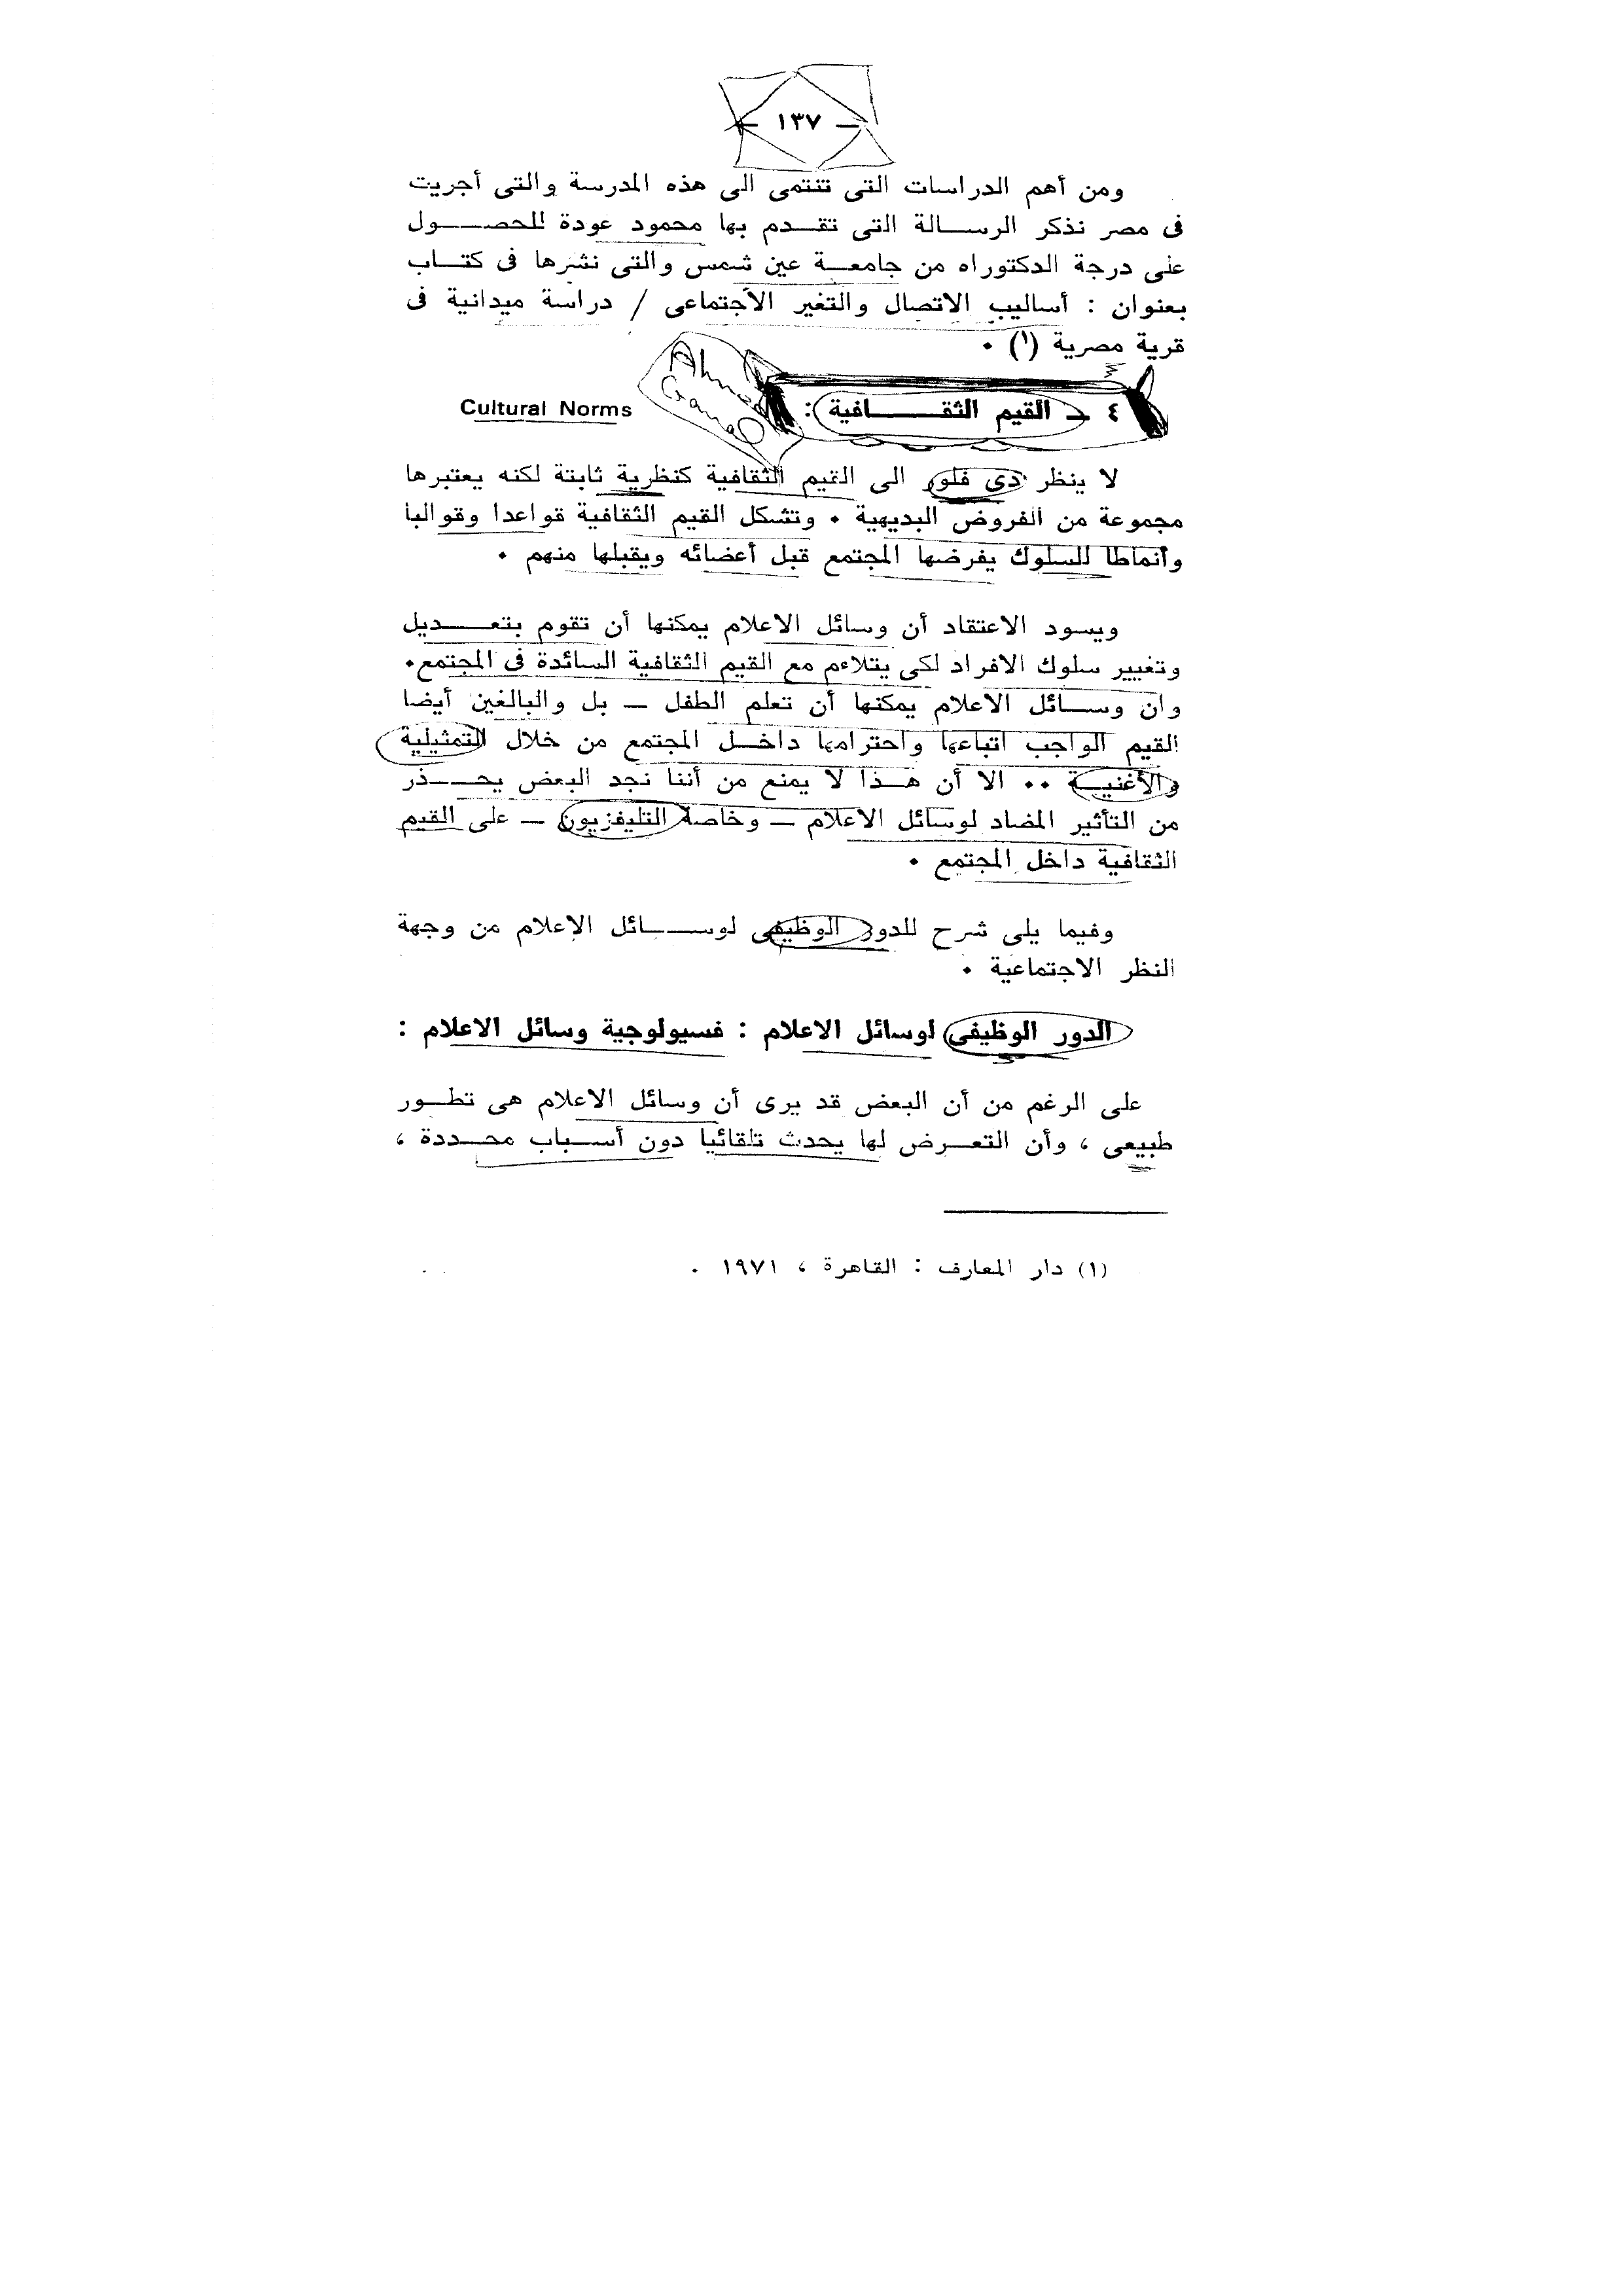 — ١٣٧ —
ومن أهم الدراسات التى تنتمى الى هذه المدرسة والتى أجريت
فى مصر نذكر الرسالة التى تقدم بها محمود عودة للحصول
على درجة الدكتوراه من جامعة عين شمس والتى نشرها فى كتاب
بعنوان : أساليب الاتصال والتغير الاجتماعى / دراسة ميدانية فى
قرية مصرية (١) .
٤ — القيم الثقافية : Cultural Norms
Ahmed
Gamal
لا ينظر دى فلور الى القيم الثقافية كنظرية ثابتة لكنه يعتبرها
مجموعة من الفروض البديهية . وتشكل القيم الثقافية قواعدا وقوالبا
وأنماطا للسلوك يفرضها المجتمع قبل أعضائه ويقبلها منهم .
ويسود الاعتقاد أن وسائل الاعلام يمكنها أن تقوم بتعديل
وتغيير سلوك الافراد لكى يتلاءم مع القيم الثقافية السائدة فى المجتمع.
وان وسائل الاعلام يمكنها أن تعلم الطفل — بل والبالغين أيضا
القيم الواجب اتباعها واحترامها داخل المجتمع من خلال التمثيلية
والأغنية .. الا أن هذا لا يمنع من أننا نجد البعض يحذر
من التأثير المضاد لوسائل الاعلام — وخاصة التليفزيون — على القيم
الثقافية داخل المجتمع .
وفيما يلى شرح للدور الوظيفى لوسائل الإعلام من وجهة
النظر الاجتماعية .
الدور الوظيفى لوسائل الاعلام : فسيولوجية وسائل الاعلام :
على الرغم من أن البعض قد يرى أن وسائل الاعلام هى تطور
طبيعى ، وأن التعرض لها يحدث تلقائيا دون أسباب محددة ،
(١) دار المعارف : القاهرة ، ١٩٧١ .